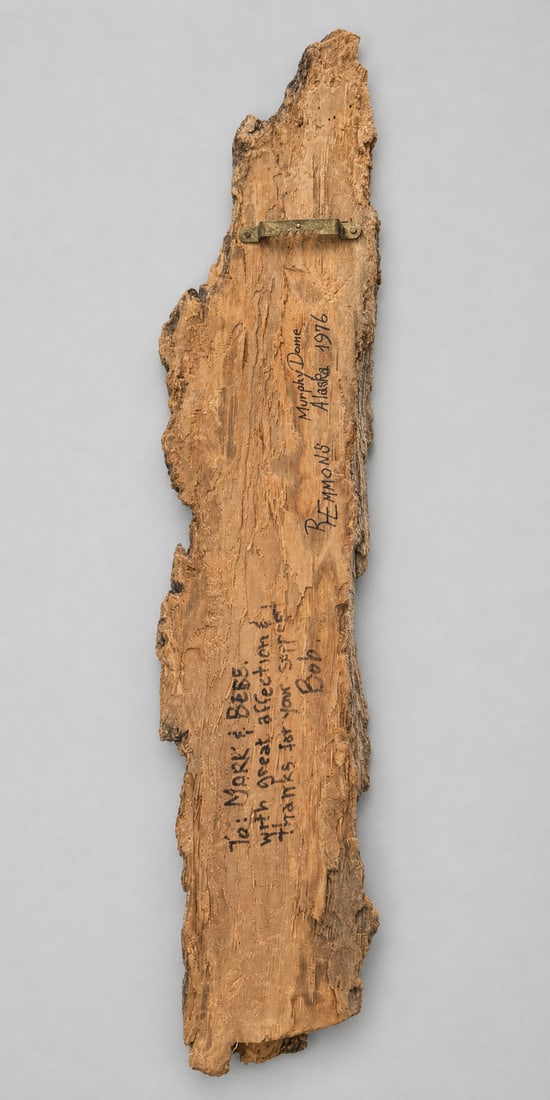 To: MARK & BEBE.
with great affection &
thanks for your
Bob.
R EMMONS
Murphy Dome
Alaska 1976